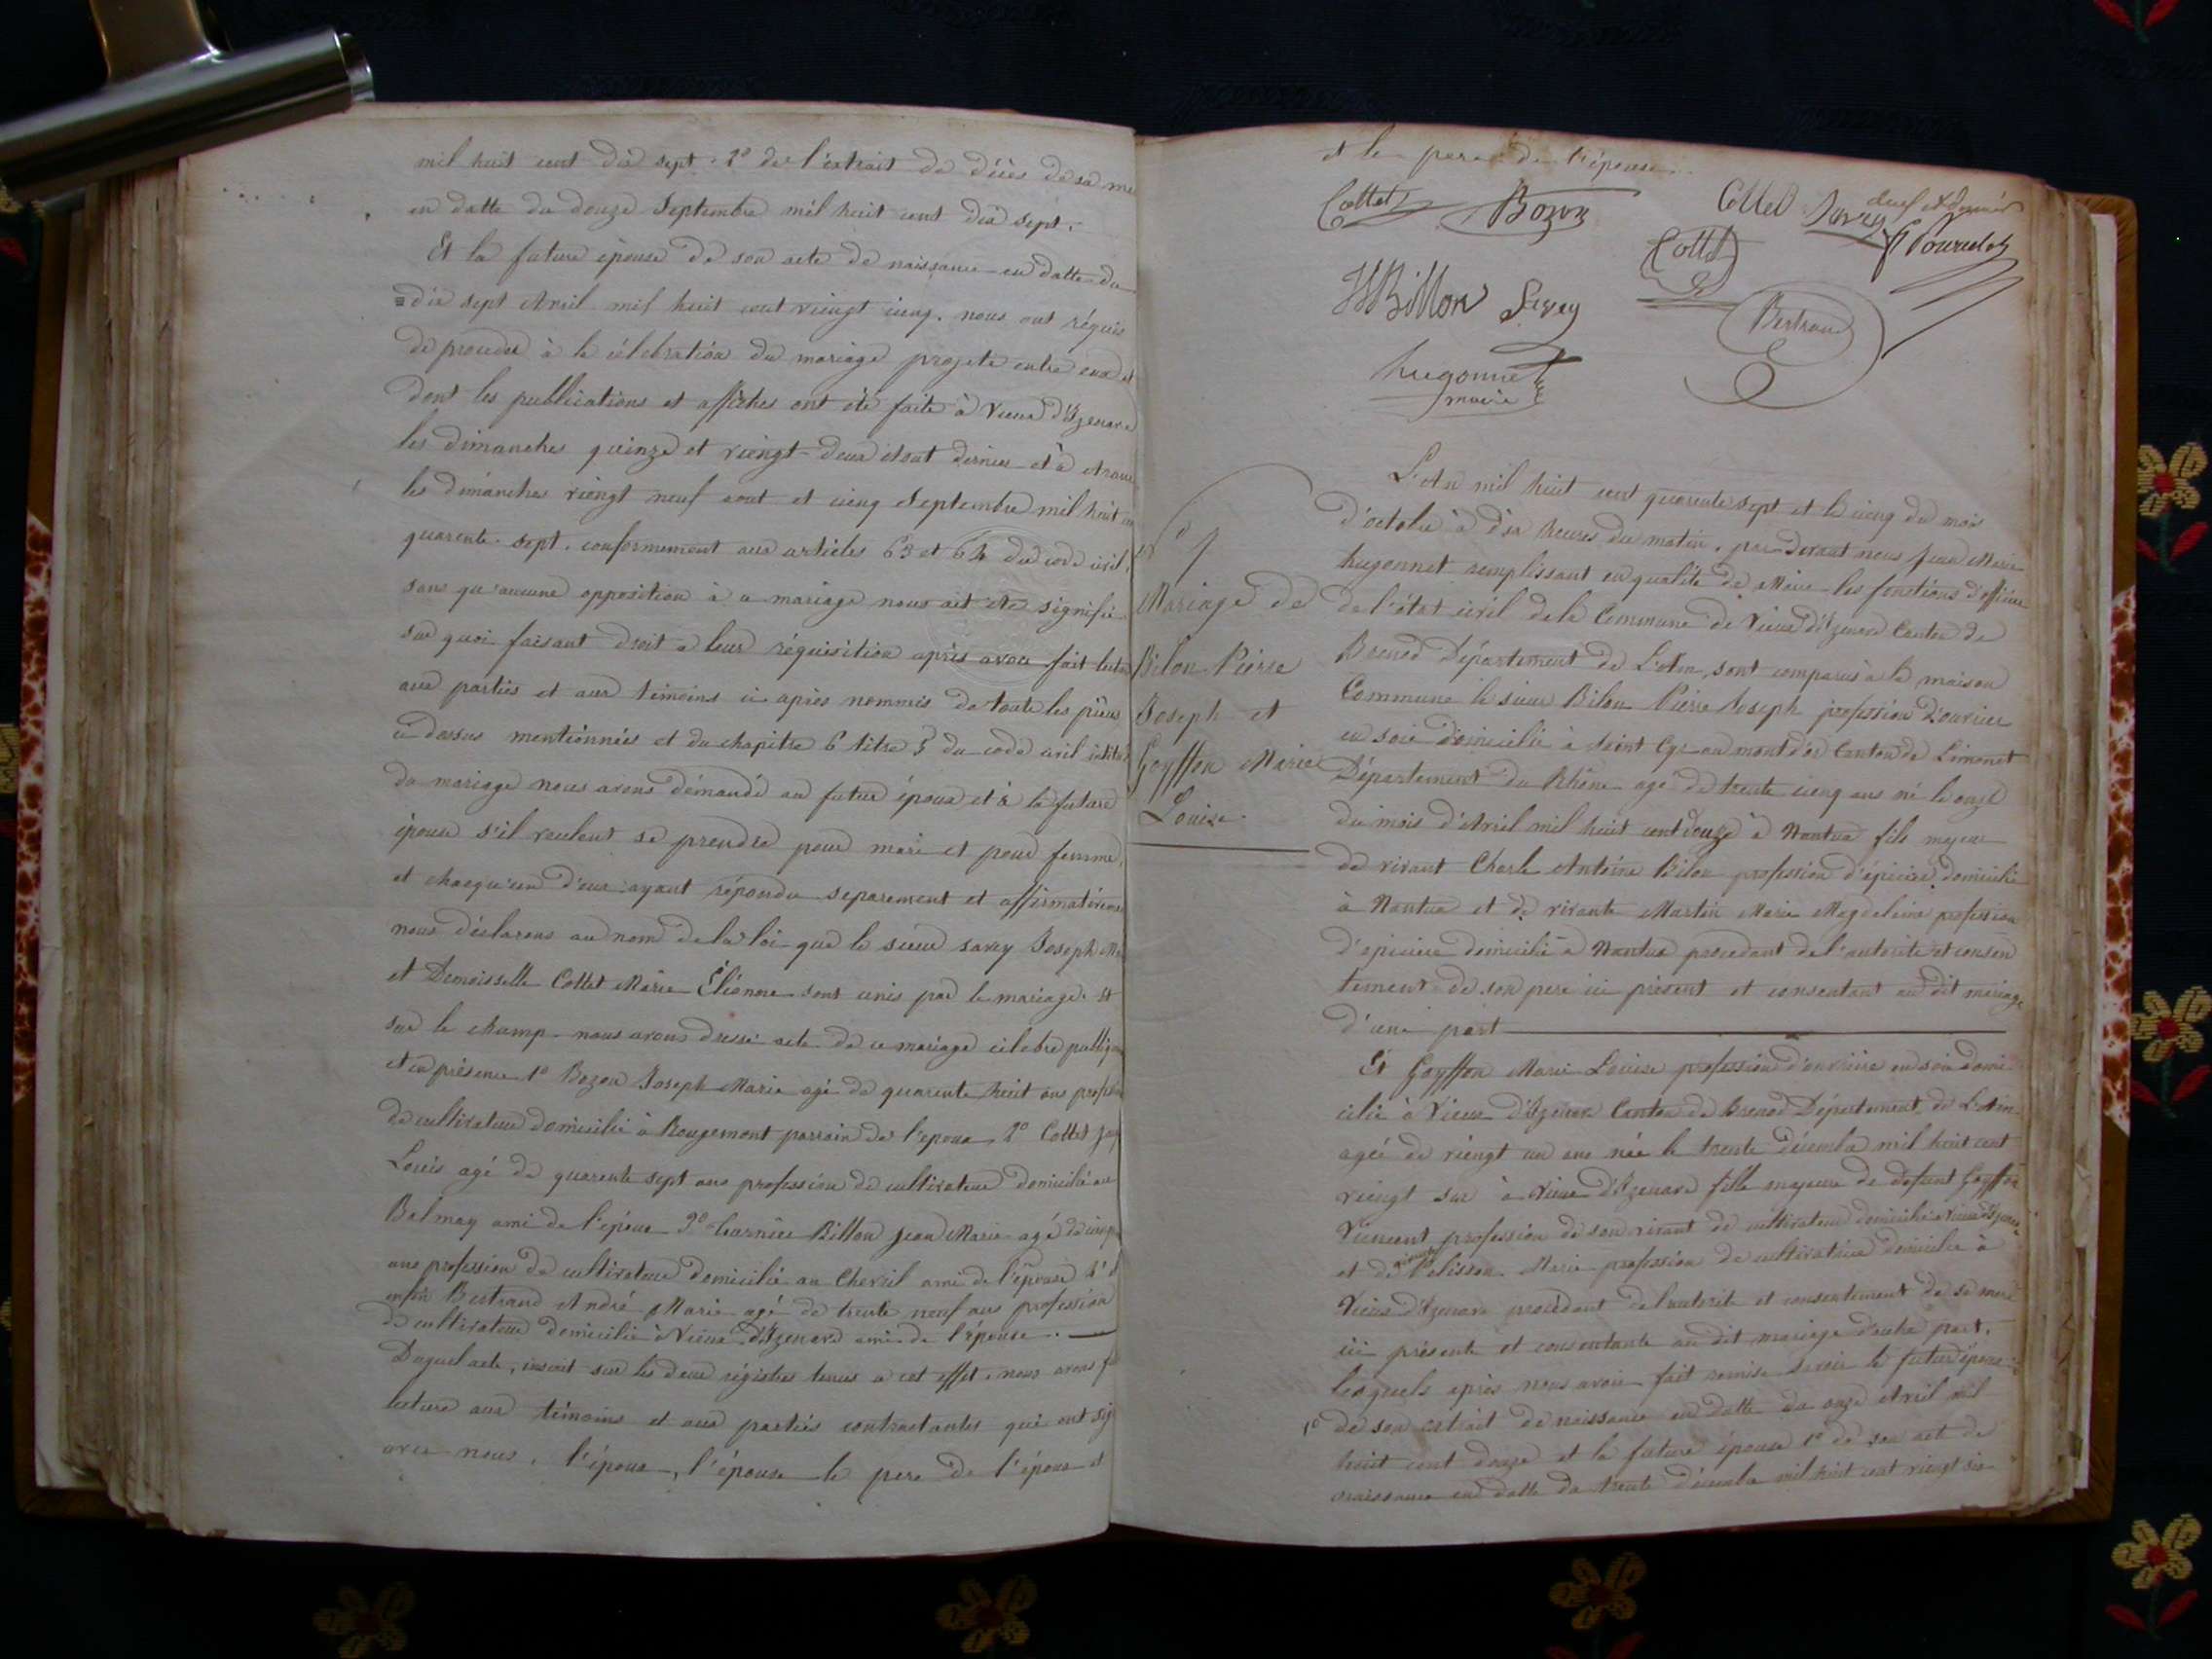 mil huit cent dix sept. 2° de l'extrait de décès de sa me
en datte du douze Septembre mil huit cent dix sept.
Et la future épouse de son acte de naissance en datte du
dix sept Avril mil huit cent vingt cinq. nous ont réquis
de proceder à la célébration du mariage projeté entre eux et
dont les publications et affiches ont été faite à Vieux d'Izenave
les dimanches quinze et vingt-deux Aout dernier et à
les dimanches vingt neuf aout et cinq Septembre mil huit
quarente-sept. conformement aux articles 63 et 64 du code civil,
sans qu'aucune opposition à ce mariage nous ait été signifié
sur quoi faisant droit a leur réquisition après avoir fait lectu
aux parties et aux témoins ci après nommés de toute les pièces
ci dessus mentionnées et du chapitre 6 titre 5 du code civil intitu
du mariage nous avons démandé au futur époux et à la future
épouse s'il veulent se prendre pour mari et pour femme,
et chaequ'un d'eux ayant répondu separement et affirmativeme
nous déclarons au nom de la loi que le sieur savey Joseph
et Demoisselle Collet Marie Eléonore sont unis par le mariage. Et
sur le champ nous avons dressé acte de ce mariage célébré publiq
et en présence 1° Bozon Joseph Marie agé de quarente huit ans profess
de cultivateur domicilié à Rougemont parrain de l'epoux 2° Collet
Louis agé de quarente sept ans profession de cultivateur domicilié au
Balmay ami de l'époux 3° Carnier Billon Jean Marie agé de
ans profession de cultivateur domicilié au Chevril ami de l'épouse 4°
enfin Bertrand André Marie agé de trente neuf ans profession
de cultivateur domicilié à Vieux d'Izenave ami de l'épouse.
Duquel acte, inscrit sur les deux régistres tenus a cet effet, nous avons f
lecture aux témoins et aux parties contractantes qui ont sig
avec nous, l'époux, l'épouse le pere de l'époux et
et le pere de l'épouse.
Collet Bozon Collet Savey
Collet
JMBillon Savey
Bertrand
hugonnet
maire
N° 9
Mariage de
Bilon Pierre
Joseph et
Goyffon Marie
Louise.
L'An mil huit cent quarente sept et le cinq du mois
d'octobre à dix heures du matin, par devant nous Jean Marie
hugonnet remplissant en qualité de Maire les fonctions d'officier
de l'état civil de la Commune de Vieux d'Izenave Canton de
Brenod Département de L'Ain, sont comparus à la maison
Commune le sieur Bilon Pierre Joseph profession d'ouvrier
en soie domicilié à Saint Cyr au mont d'or Canton de Limonet
Département du Rhône agé de trente cinq ans né le onze
du mois d'Avril mil huit cent douze à Nantua fils majeur
de vivant Charle Antoine Bilon profession d'épicier domicilié
à Nantua et de vivante Martin Marie Magdeleine profession
d'epiciere domicilié à Nantua procedant de l'autorité et consen
tement de son pere ici présent et consentant au dit mariage
d'une part
Et Goyffon Marie Louise profession d'ouvrière en soie domi
cilié à Vieux d'Izenave Canton de Brenod Département de L'Ain
agée de vingt un ans née le trente décembre mil huit cent
vingt six à Vieux d'Izenave fille majeure de defunt Goyffon
Vincent profession de son vivant de cultivateur domicilié à Vieux d'Izenave
et de vivante Pelisson Marie profession de cultivatrice domicilié à
Vieux d'Izenave procédant de l'autorité et consentement de sa mere
ici présente et consentante au dit mariage d'autre part.
lesquels après nous avoir fait remise savoir le futur époux
1° de son extrait de naissance en datte du onze Avril mil
huit cent douze et la future épouse 1° de son act de
naissance en datte du trente décembre mil huit cent vingt six